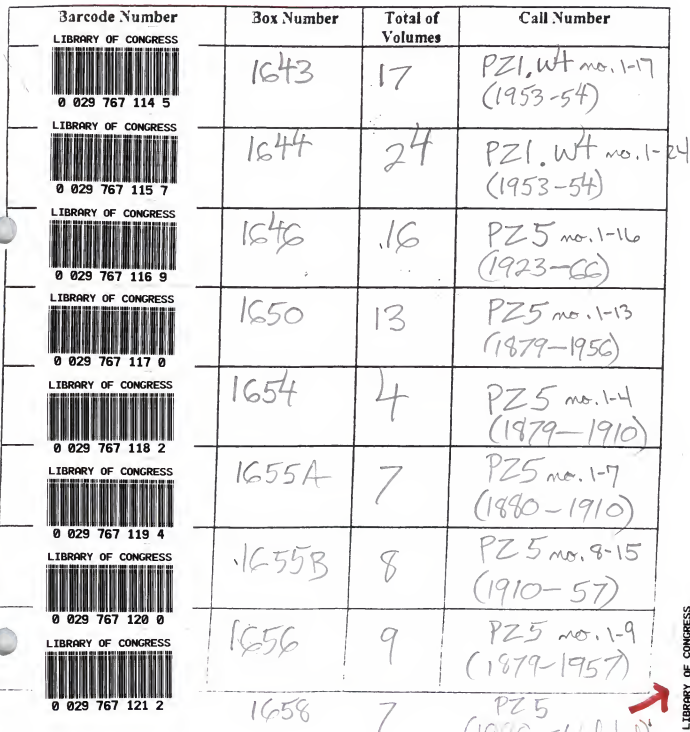 Barcode Number Box Number Total of Volumes Call Number
LIBRARY OF CONGRESS
0 029 767 114 5
1643 17 PZ1.W4 no. 1-17
(1953-54)
LIBRARY OF CONGRESS
0 029 767 115 7
1644 24 PZ1.W4 no. 1-24
(1953-54)
LIBRARY OF CONGRESS
0 029 767 116 9
1646 16 PZ5 no. 1-16
(1923-66)
LIBRARY OF CONGRESS
0 029 767 117 0
1650 13 PZ5 no. 1-13
(1879-1956)
LIBRARY OF CONGRESS
0 029 767 118 2
1654 4 PZ5 no. 1-4
(1879-1910)
LIBRARY OF CONGRESS
0 029 767 119 4
1655A 7 PZ5 no. 1-7
(1880-1910)
LIBRARY OF CONGRESS
0 029 767 120 0
1655B 8 PZ5 no. 8-15
(1910-57)
LIBRARY OF CONGRESS
0 029 767 121 2
1656 9 PZ5 no. 1-9
(1879-1957)
1658 7 PZ5
LIBRARY OF CONGRESS